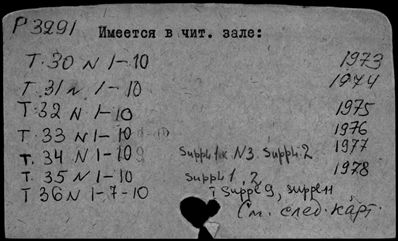 Р 3291 Имеется в чит. зале:
Т. 30 N 1-10 1973
Т. 31 N 1-10 1974
Т. 32 N 1-10 1975
Т. 33 N 1-10 1976
Т. 34 N 1-10 Suppl. 1 к N3. Suppl. 2 1977
Т. 35 N 1-10 Suppl 1, 2 1978
Т 36 N 1-7-10 Suppl 9, Suppl 11
См. след. карт.